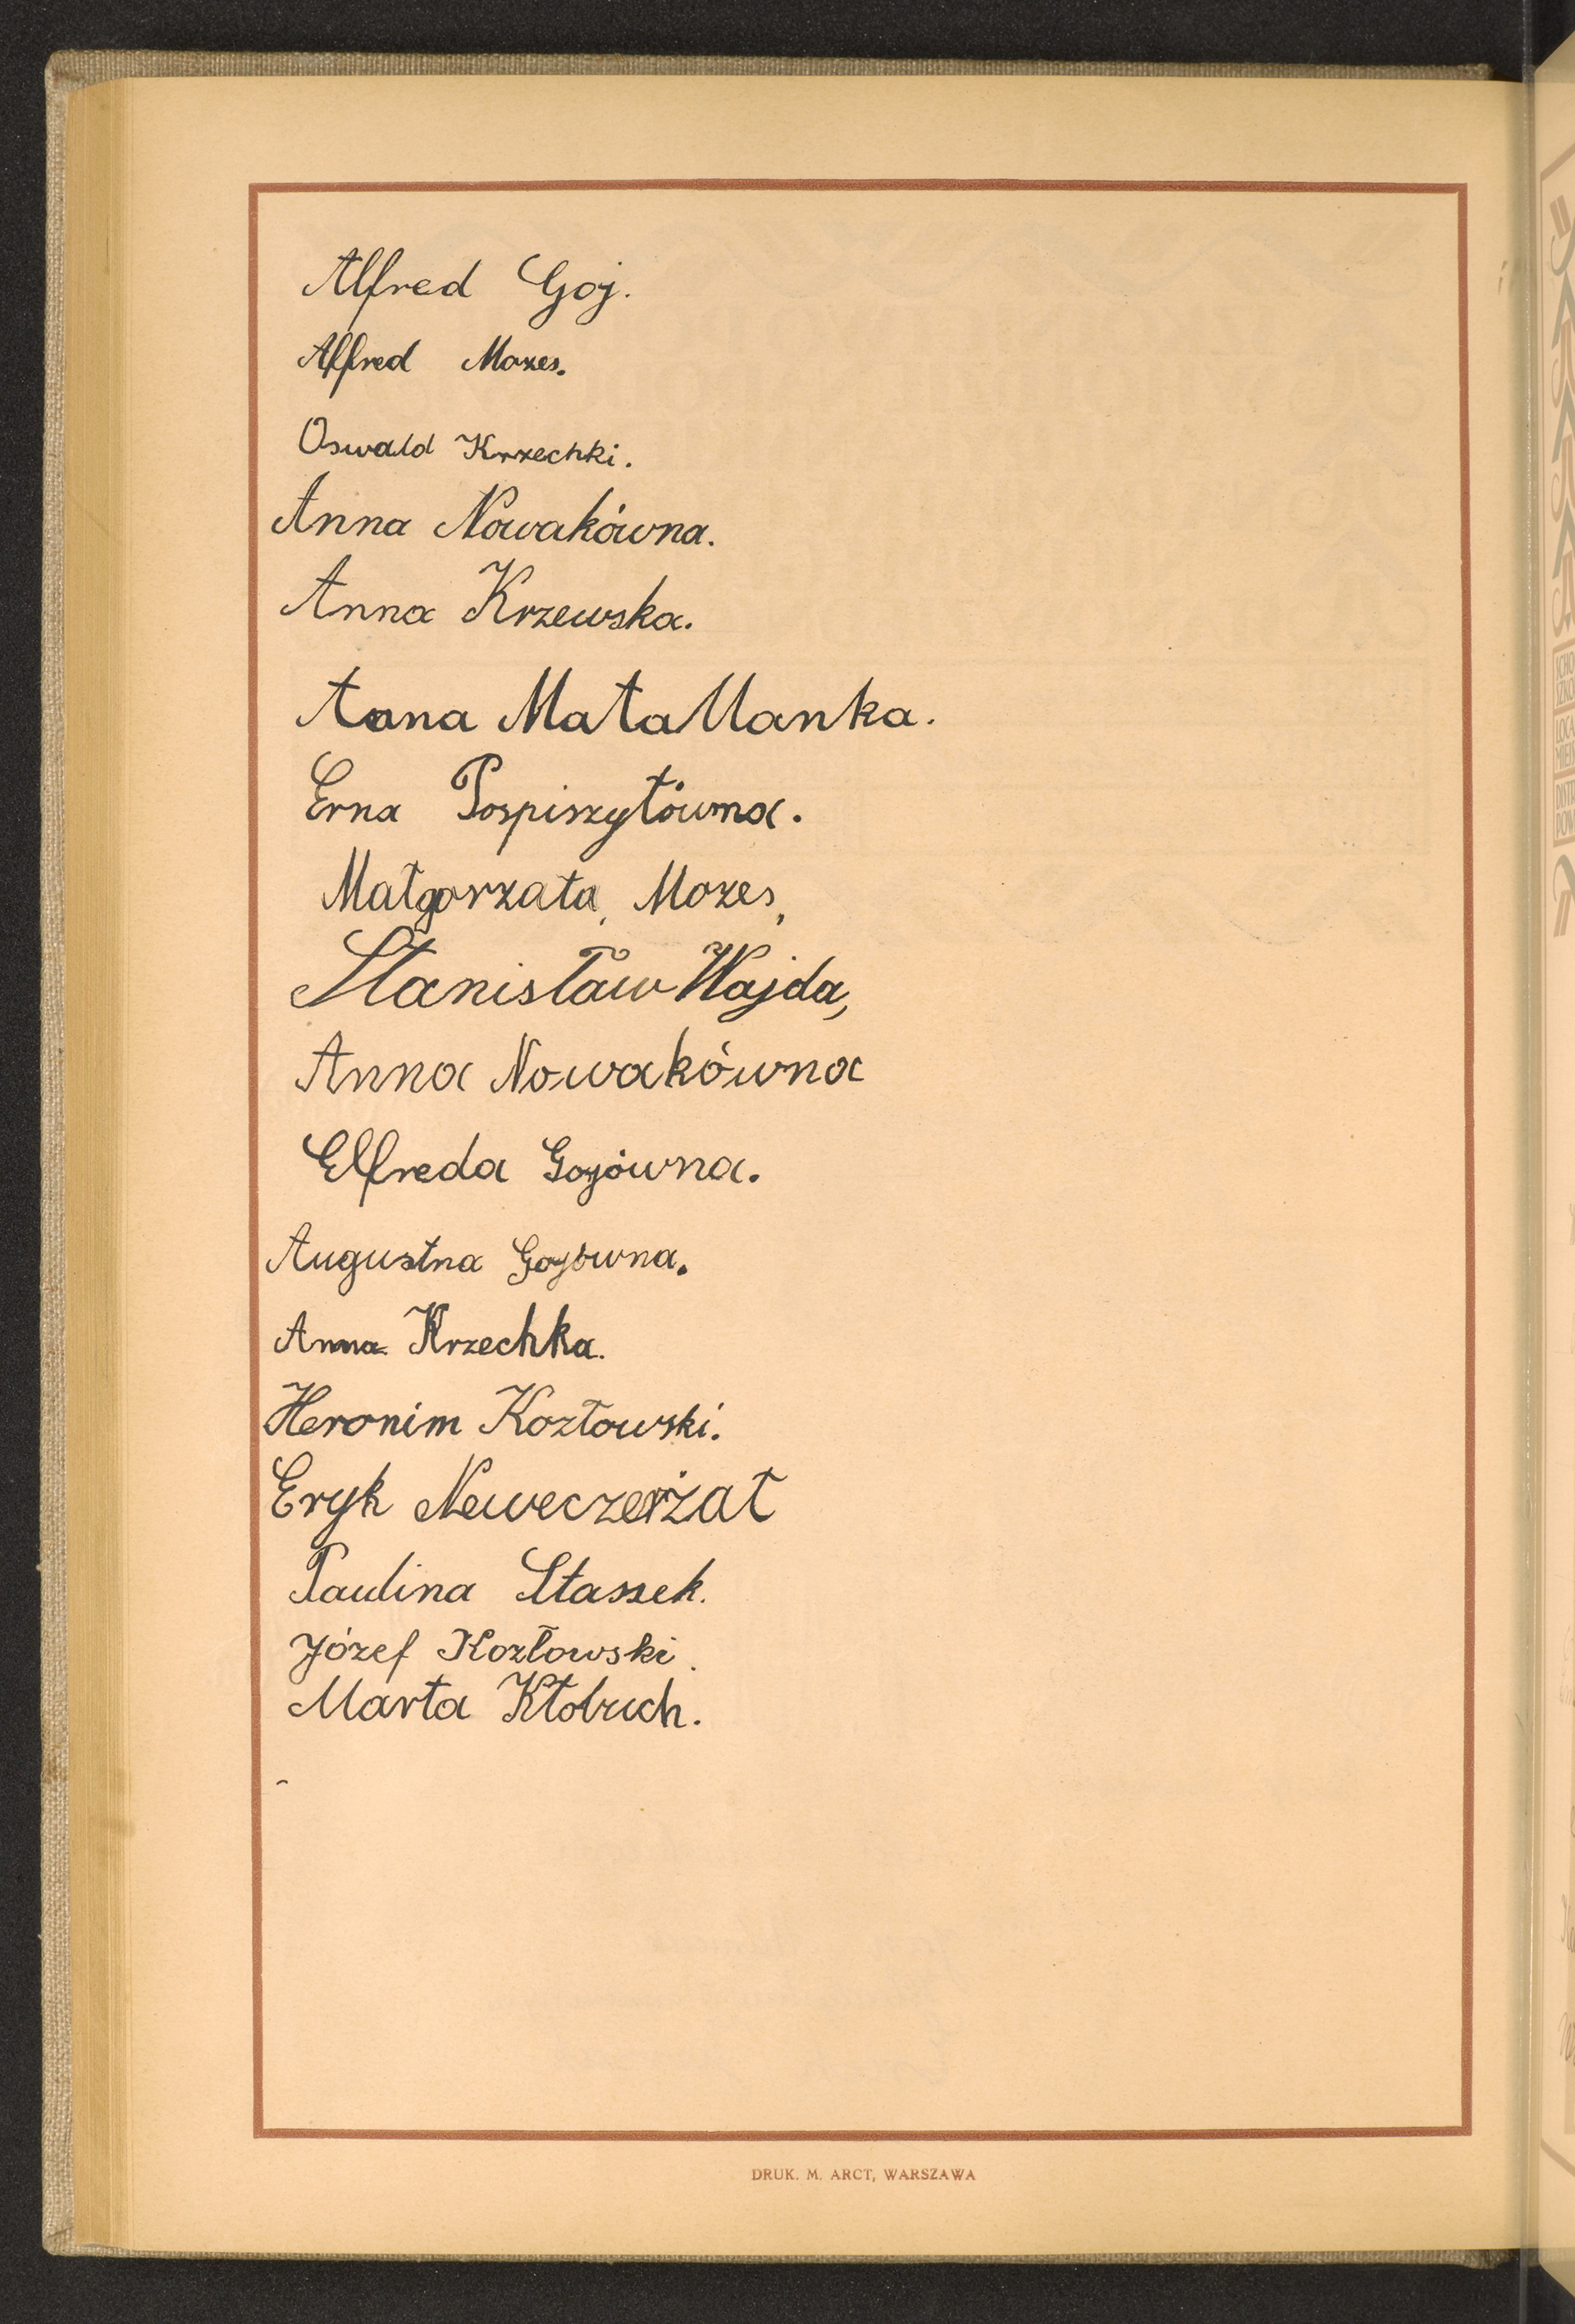 Alfred Goj.
Alfred Mozes.
Oswald Krzechki.
Anna Nowakówna.
Anna Krzewska.
Anna
Erna Pospiszytówna.
Małgorzata Mozes,
Stanisław Wajda,
Anna Nowakówna
Elfreda Gojówna.
Augustna Gojówna.
Anna Krzechka.
Heronim Kozłowski.
Eryk
Paulina Staszek.
Józef Kozłowski.
Marta
DRUK. M. ARCT, WARSZAWA